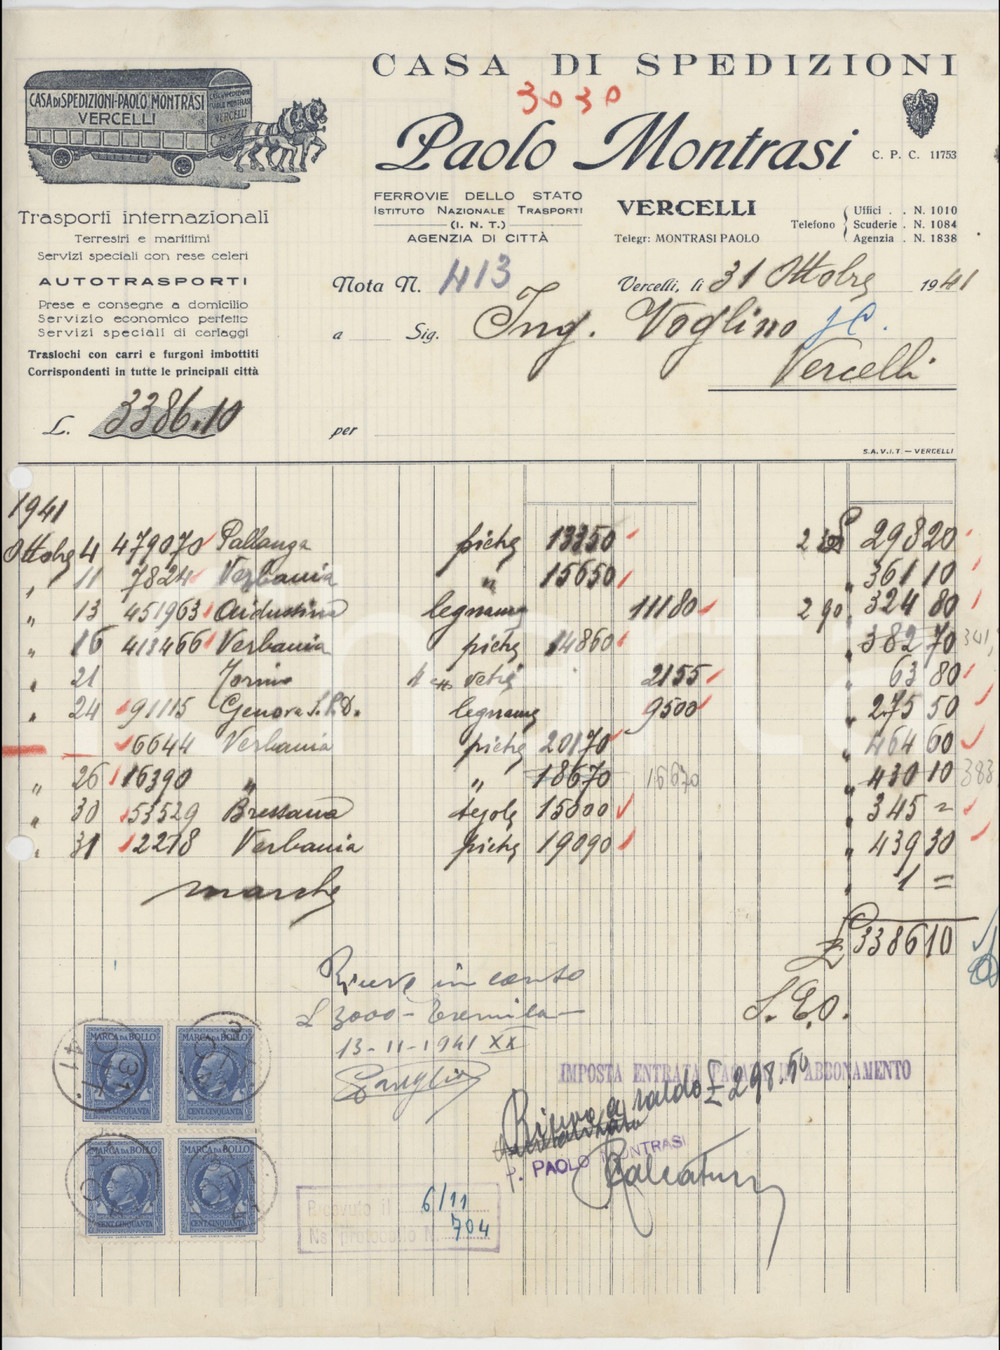 CASA DI SPEDIZIONI
3030
Paolo Montrasi
C. P. C. 11753
CASA DI SPEDIZIONI-PAOLO MONTRASI
VERCELLI
FERROVIE DELLO STATO
ISTITUTO NAZIONALE TRASPORTI
(I. N. T.)
AGENZIA DI CITTÀ
VERCELLI
Telegr: MONTRASI PAOLO
Telefono
Uffici . . N. 1010
Scuderie . N. 1084
Agenzia . N. 1838
Trasporti internazionali
Terrestri e marittimi
Servizi speciali con rese celeri
AUTOTRASPORTI
Prese e consegne a domicilio
Servizio economico perfetto
Servizi speciali di carlaggi
Traslochi con carri e furgoni imbottiti
Corrispondenti in tutte le principali città
L. 3386.10
Nota N. 413
Vercelli, li 31 Ottobre 1941
a Sig. Ing. Voglino
Vercelli
per
S.A.V.I.T. — VERCELLI
1941
Ottobre 4 479070 Pallanza pietre 13350 298 20
" 11 7824 Verbania " 15650 " 361 10
" 13 451963 legname 11180 2 90 " 324 80
" 16 418466 Verbania pietre 14860 " 382 70 341,
" 21 Torino 2155 " 63 80
" 24 91115 Genova legname 9500 " 275 50
6644 Verbania pietre 20170 " 464 60
" 26 16390 " " 18670 16670 " 430 10 383
" 30 53529 Bressana tegole 15000 " 345 =
" 31 2278 Verbania pietre 19090 " 439 30
marche " 1 =
£ 3386 10
S. E. O.
Riceve in conto
£ 3000 - tremila -
13-11-1941 XX
IMPOSTA ENTRATA PAGATA IN ABBONAMENTO
Ricevo a saldo £ 298.50
p. PAOLO MONTRASI
MARCA DA BOLLO
CENT. CINQUANTA
MARCA DA BOLLO
CENT. CINQUANTA
MARCA DA BOLLO
CENT. CINQUANTA
MARCA DA BOLLO
CENT. CINQUANTA
Ricevuto il 6/11
Ns. protocollo N. 704